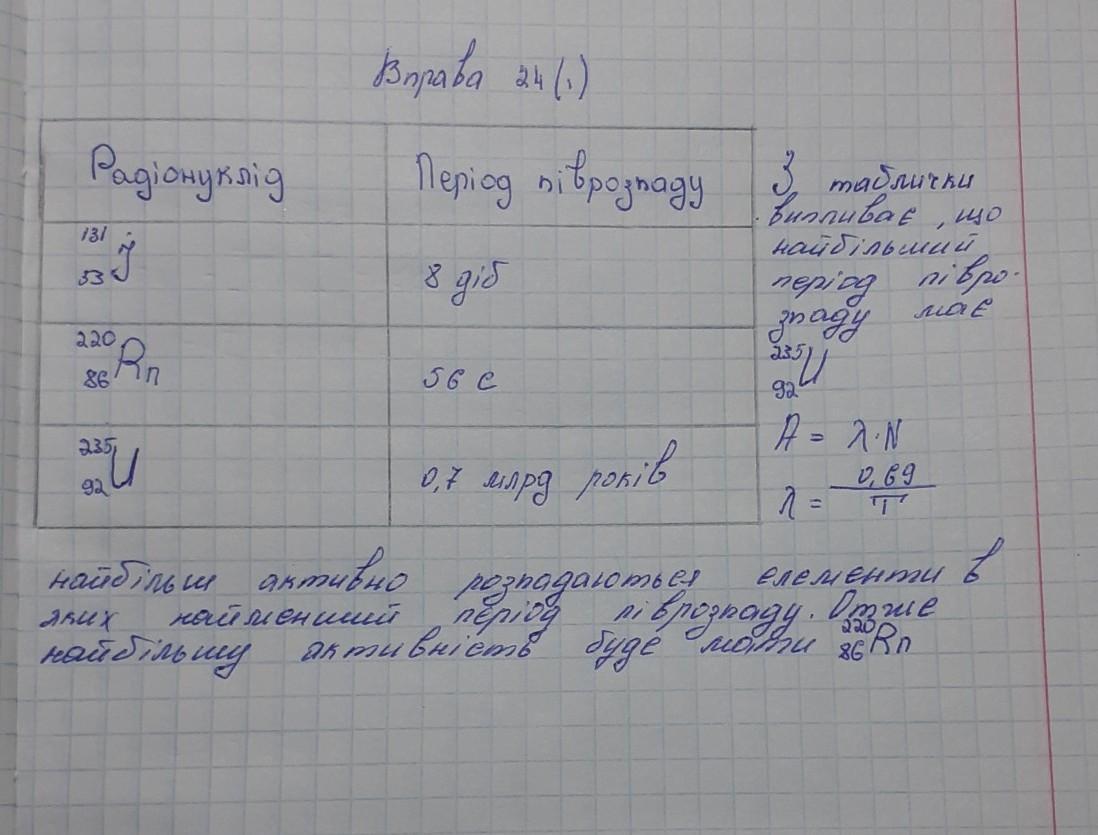 Вправа 24 (1)
Радіонуклід Період піврозпаду
¹³¹₅₃J 8 діб
²²⁰₈₆Rn 56 с
²³⁵₉₂U 0,7 млрд років
З таблички
випливає, що
найбільший
період півро-
зпаду має
²³⁵₉₂U
A = λ·N
λ = 0,69/T
найбільш активно розпадаються елементи в
яких найменший період піврозпаду. Отже
найбільшу активність буде мати ²²⁰₈₆Rn